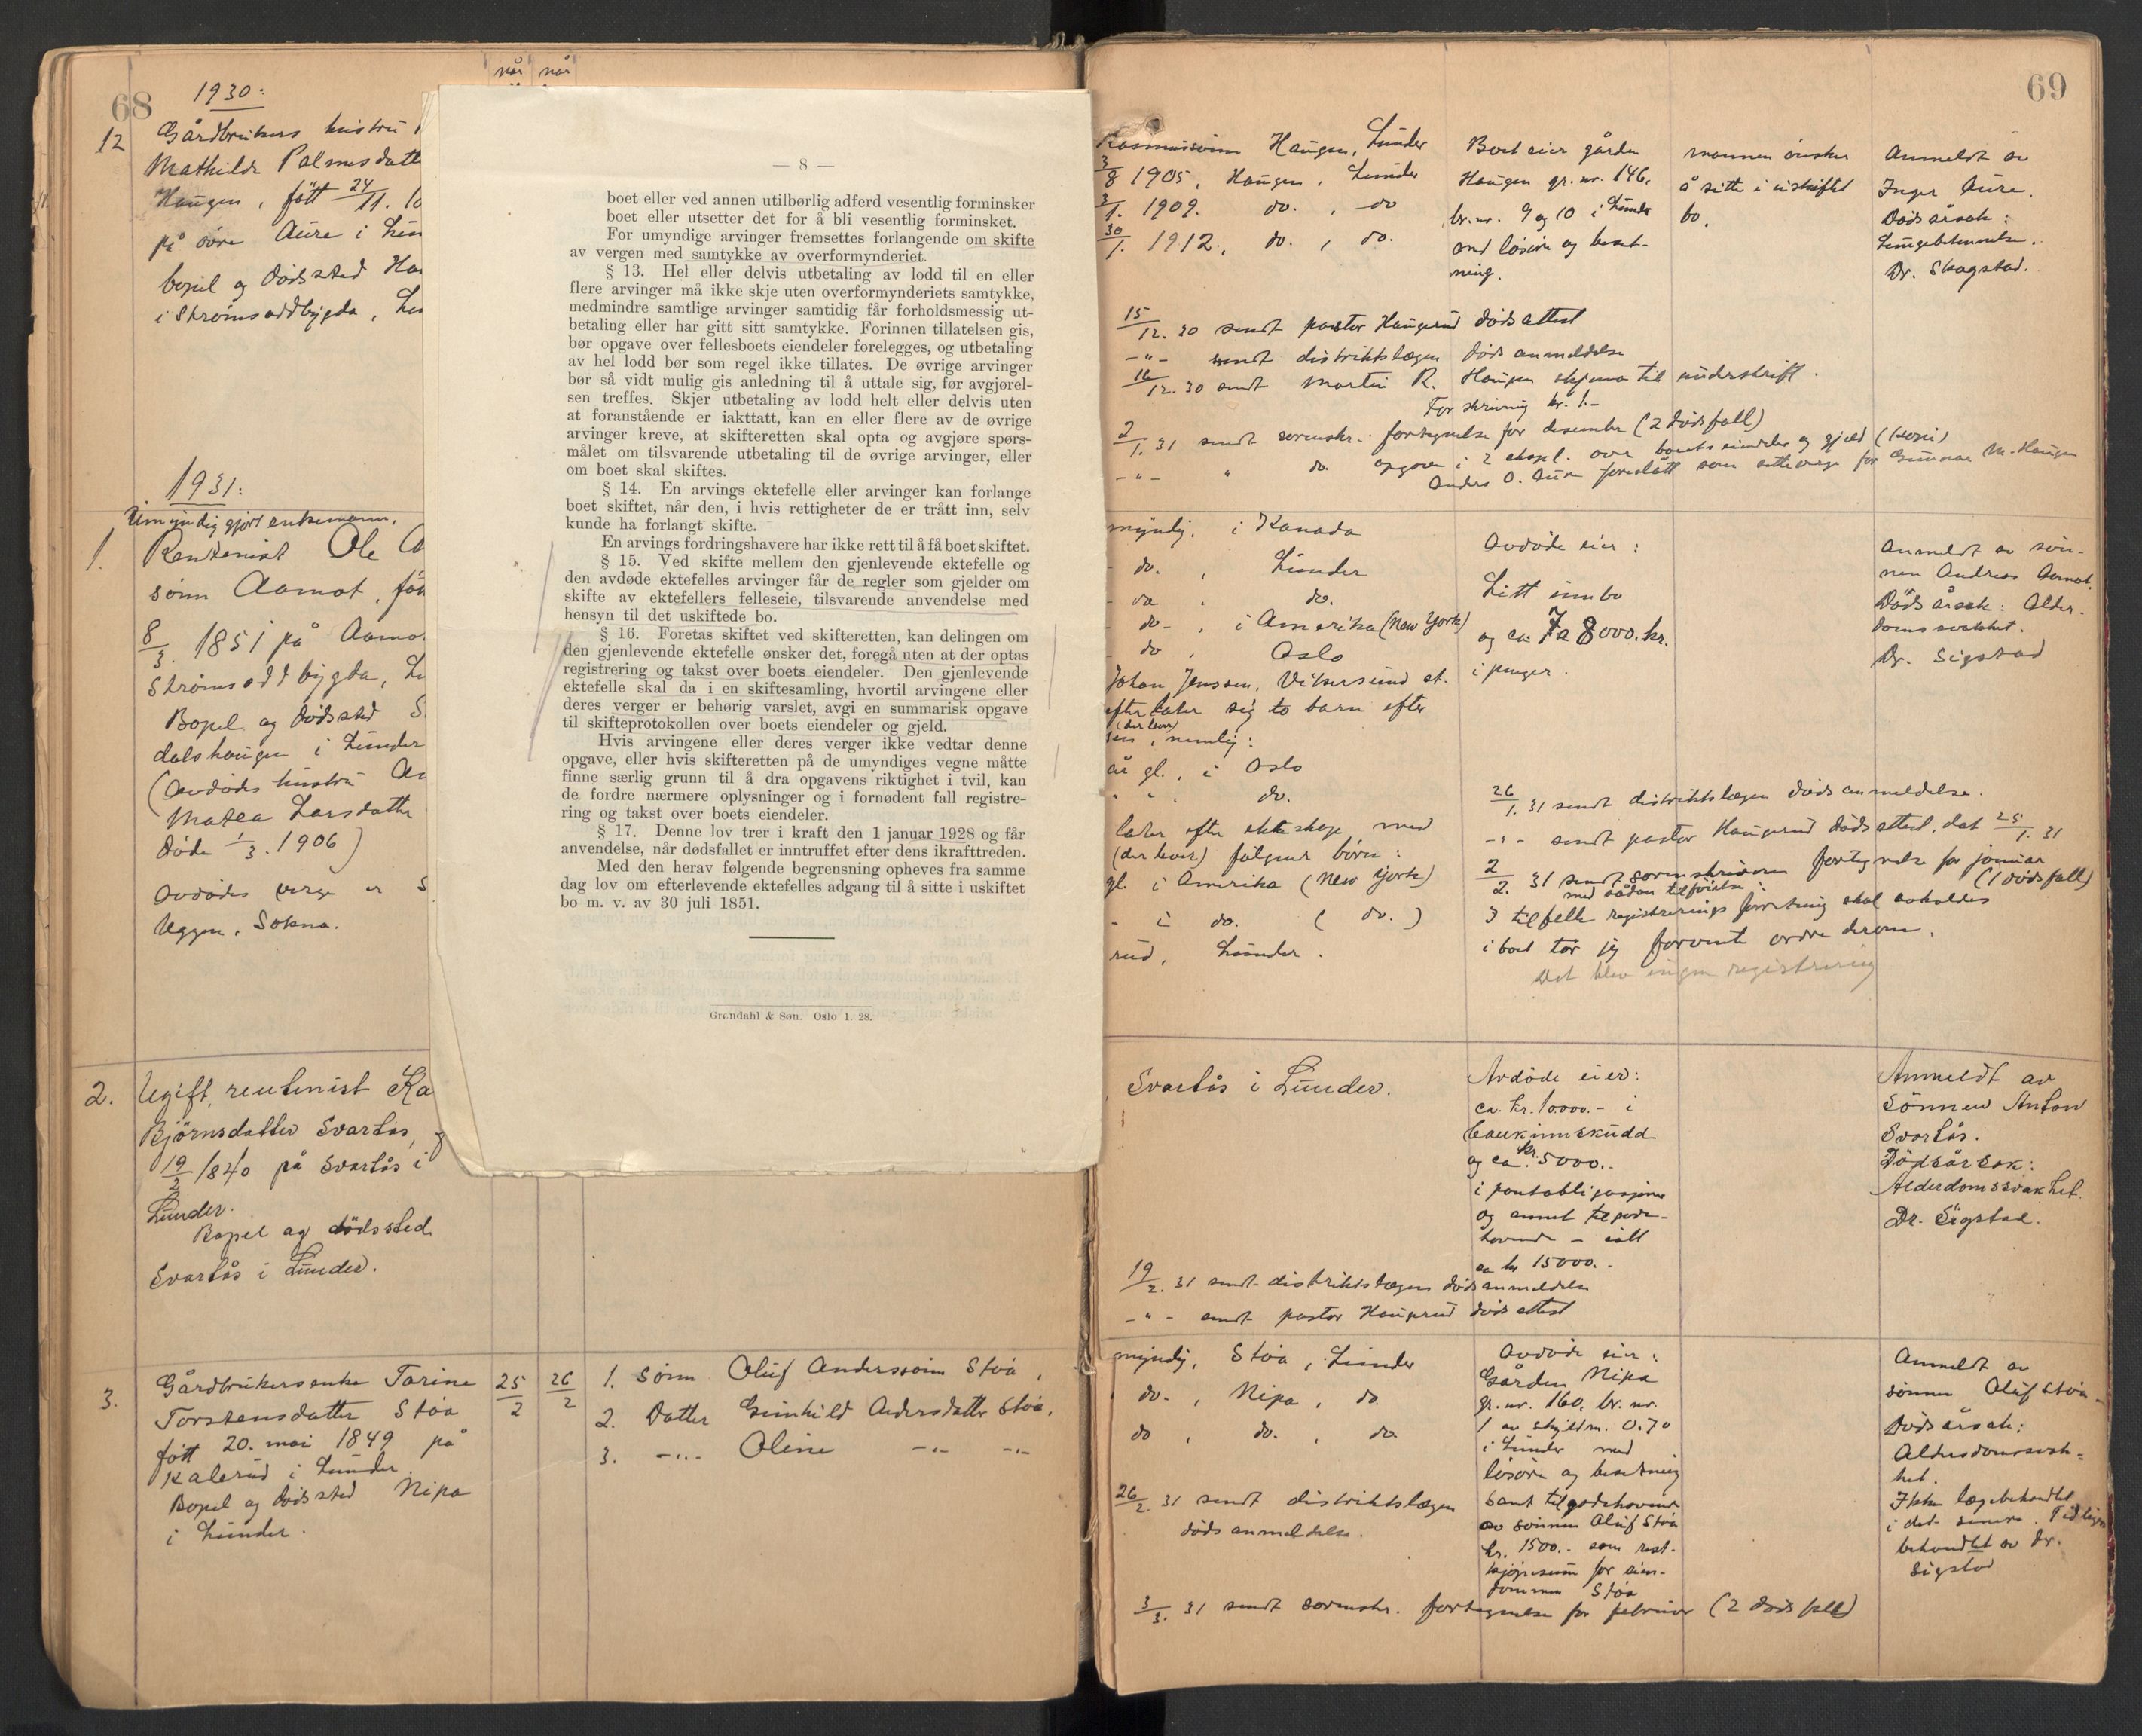 68
1930:
når når
12 Gårdbrukers hustru
Mathilde Palmesdatt
Haugen, født 24/11.
på øvre Aure i Lun
bopel og dødsted Ha
i Strømsoddbygda, Lu
1931:
Umyndiggjort enkemann.
1. Rentenist Ole
sønn Aamot, fø
8/3. 1851 på Aamo
Strømsoddbygda, L
Bopel og dødsted S
dalshaugen i Lunder
(Avdødes hustru An
Matea Larsdatter
døde 1/3. 1906)
Avdødes verge er S
Uggen, Sokna.
2. Ugift, rentenist Ka
Bjørnsdatter Svartås,
19/2 1840 på Svartås i
Lunder.
Bopel og dødssted
Svartås i Lunder.
3. Gårdbrukerenke Torine
Torstensdatter Støa
født 20. mai 1849 på
Kalerud i Lunder.
Bopel og dødsted Nipa
i Lunder.
25/2 26/2
1. Sønn Oluf Anderssønn Støa,
2. Datter Gunhild Andersdatter Stöa,
3. -"- Oline -"- -"-
— 8 —
boet eller ved annen utilbørlig adferd vesentlig forminsker
boet eller utsetter det for å bli vesentlig forminsket.
For umyndige arvinger fremsettes forlangende om skifte
av vergen med samtykke av overformynderiet.
§ 13. Hel eller delvis utbetaling av lodd til en eller
flere arvinger må ikke skje uten overformynderiets samtykke,
medmindre samtlige arvinger samtidig får forholdsmessig ut-
betaling eller har gitt sitt samtykke. Forinnen tillatelsen gis,
bør opgave over fellesboets eiendeler forelegges, og utbetaling
av hel lodd bør som regel ikke tillates. De øvrige arvinger
bør så vidt mulig gis anledning til å uttale sig, før avgjørel-
sen treffes. Skjer utbetaling av lodd helt eller delvis uten
at foranstående er iakttatt, kan en eller flere av de øvrige
arvinger kreve, at skifteretten skal opta og avgjøre spørs-
målet om tilsvarende utbetaling til de øvrige arvinger, eller
om boet skal skiftes.
§ 14. En arvings ektefelle eller arvinger kan forlange
boet skiftet, når den, i hvis rettigheter de er trått inn, selv
kunde ha forlangt skifte.
En arvings fordringshavere har ikke rett til å få boet skiftet.
§ 15. Ved skifte mellem den gjenlevende ektefelle og
den avdøde ektefelles arvinger får de regler som gjelder om
skifte av ektefellers felleseie, tilsvarende anvendelse med
hensyn til det uskiftede bo.
§ 16. Foretas skiftet ved skifteretten, kan delingen om
den gjenlevende ektefelle ønsker det, foregå uten at der optas
registrering og takst over boets eiendeler. Den gjenlevende
ektefelle skal da i en skiftesamling, hvortil arvingene eller
deres verger er behørig varslet, avgi en summarisk opgave
til skifteprotokollen over boets eiendeler og gjeld.
Hvis arvingene eller deres verger ikke vedtar denne
opgave, eller hvis skifteretten på de umyndiges vegne måtte
finne særlig grunn til å dra opgavens riktighet i tvil, kan
de fordre nærmere oplysninger og i fornødent fall registre-
ring og takst over boets eiendeler.
§ 17. Denne lov trer i kraft den 1 januar 1928 og får
anvendelse, når dødsfallet er inntruffet efter dens ikrafttreden.
Med den herav følgende begrensning opheves fra samme
dag lov om efterlevende ektefelles adgang til å sitte i uskiftet
bo m. v. av 30 juli 1851.
Grøndahl & Søn. Oslo 1. 28.
69
Rasmussønn Haugen, Lunder
3/8 1905, Haugen, Lunder
3/1. 1909. do., do
30/1. 1912, do., do.
Boet eier gården
Haugen gr. nr. 146,
br. nr. 9 og 10 i Lunder
med løsøre og beset-
ning.
mannen ønsker
å sitte i uskiftet
bo.
Anmeldt av
Inger Aure.
Dødsårsak:
Lungebetennelse.
Dr. Skagstad.
15/12. 30 sendt pastor Haugerud dødsattest
-"- sendt distriktslægen dødsanmeldelse
16/12. 30 sendt Martin R. Haugen skjema til underskrift.
For skriving kr. 1.-
2/1. 31 sendt sorenskr. fortegnelse for desember (2 dødsfall)
-"- " do. opgave i 2 ekspl. over boets eiendeler og gjeld (kopi)
Anders O. Aure foreslått som setteverge for Gunnar M. Haugen
myndig, i Kanada
do., Lunder
do do.
do-, i Amerika (New York)
do, Oslo
Johan Jenssen, Vikersund st.
efterlater sig to barn efter
(der lever)
sen, nemlig:
år gl., i Oslo
" " do.
later efter ekteskap med
(der lever) følgene børn:
gl. i Amerika (New York)
- i do. (do.)
rud, Lunder.
Avdøde eier:
Litt innbo
og ca. 7 a 8000. kr.
i penger.
Anmeldt av søn-
nen Andreas Aamot.
Dødsårsak: Alder-
domssvakhet.
Dr. Sigstad
26/1. 31 sendt distriktslægen dødsanmeldelse.
-"- sendt pastor Haugerud dødsattest, dat 25/1. 31
2/2. 31 sendt sorenskriveren fortegnelse for januar
med sådan tilføielse: (1 dødsfall)
I tilfelle registreringsforretning skal avholdes
i boet tør jeg forvente ordre derom.
Det blev ingen registrering
Svartås i Lunder.
Avdøde eier:
ca. kr. 10000.- i
bankinnskudd
og ca. kr. 5000.-
i pantobligasjoner
og annet tilgode-
havende - ialt
ca kr 15000.-
Anmeldt av
Sönnen Anton
Svartås.
Dødsårsak:
Alderdomssvakhet.
Dr. Sigstad.
19/2. 31 sendt distriktslægen dødsanmeldelse
-"- sendt pastor Haugerud dødsattest
myndig, Stöa, Lunder
do., Nipa, do.
do, do., do.
Avdøde eier:
Gården Nipa
gr. nr. 160, br. nr.
1 av skyldm. 0.70
i Lunder med
løsøre og besetning
samt tilgodehavende
av sønnen Oluf Stöa
kr. 1500.- som rest-
kjøpesum for eien-
dommen Stöa
Anmeldt av
sønnen Oluf Stöa
Dødsårsak:
Alderdomssvak=
het.
Ikke lægebehandlet
i det senere. Tidligere
behandlet av dr.
Sigstad
26/2. 31 sendt distriktslægen
dødsanmeldelse.
3/3. 31 sendt sorenskr. fortegnelse for februar (2 dødsfall)